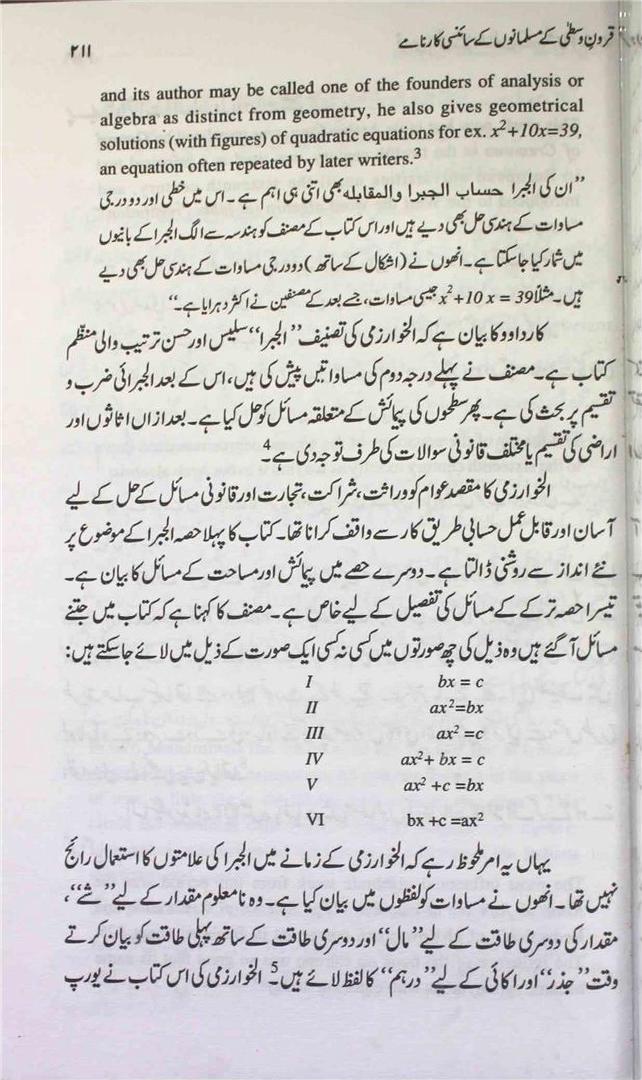 قرونِ وسطیٰ کے مسلمانوں کے سائنسی کارنامے ۲۱۱
and its author may be called one of the founders of analysis or
algebra as distinct from geometry, he also gives geometrical
solutions (with figures) of quadratic equations for ex. x²+10x=39,
an equation often repeated by later writers.³
”ان کی الجبرا حساب الجبرا والمقابلہ بھی اتنی ہی اہم ہے۔ اس میں خطی اور دو درجی
مساوات کے ہندسی حل بھی دیے ہیں اور اس کتاب کے مصنف کو ہندسہ سے الگ الجبرا کے بانیوں
میں شمار کیا جاسکتا ہے۔ انھوں نے (اشکال کے ساتھ) دو درجی مساوات کے ہندسی حل بھی دیے
ہیں۔ مثلاً x²+10 x = 39 جیسی مساوات، جسے بعد کے مصنفین نے اکثر دہرایا ہے۔“
کارداووکا بیان ہے کہ الخوارزمی کی تصنیف ”الجبرا“ سلیس اور حسن ترتیب والی منظّم
کتاب ہے۔ مصنف نے پہلے درجہ دوم کی مساواتیں پیش کی ہیں، اس کے بعد الجبرائی ضرب و
تقسیم پر بحث کی ہے۔ پھر سطحوں کی پیمائش کے متعلقہ مسائل کو حل کیا ہے۔ بعد ازاں اثاثوں اور
اراضی کی تقسیم یا مختلف قانونی سوالات کی طرف توجہ دی ہے۔⁴
الخوارزمی کا مقصد عوام کو وراثت، شراکت، تجارت اور قانونی مسائل کے حل کے لیے
آسان اور قابل عمل حسابی طریق کار سے واقف کرانا تھا۔ کتاب کا پہلا حصہ الجبرا کے موضوع پر
نئے انداز سے روشنی ڈالتا ہے۔ دوسرے حصے میں پیمائش اور مساحت کے مسائل کا بیان ہے۔
تیسرا حصہ ترکے کے مسائل کی تفصیل کے لیے خاص ہے۔ مصنف کا کہنا ہے کہ کتاب میں جتنے
مسائل آگئے ہیں وہ ذیل کی چھ صورتوں میں کسی نہ کسی ایک صورت کے ذیل میں لائے جاسکتے ہیں:
I bx = c
II ax²=bx
III ax² =c
IV ax²+ bx = c
V ax² +c =bx
VI bx +c =ax²
یہاں یہ امر ملحوظ رہے کہ الخوارزمی کے زمانے میں الجبرا کی علامتوں کا استعمال رائج
نہیں تھا۔ انھوں نے مساوات کو لفظوں میں بیان کیا ہے۔ وہ نامعلوم مقدار کے لیے ”شے“،
مقدار کی دوسری طاقت کے لیے ”مال“ اور دوسری طاقت کے ساتھ پہلی طاقت کو بیان کرتے
وقت ”جذر“ اور اکائی کے لیے ”درہم“ کا لفظ لائے ہیں۔⁵ الخوارزمی کی اس کتاب نے یورپ